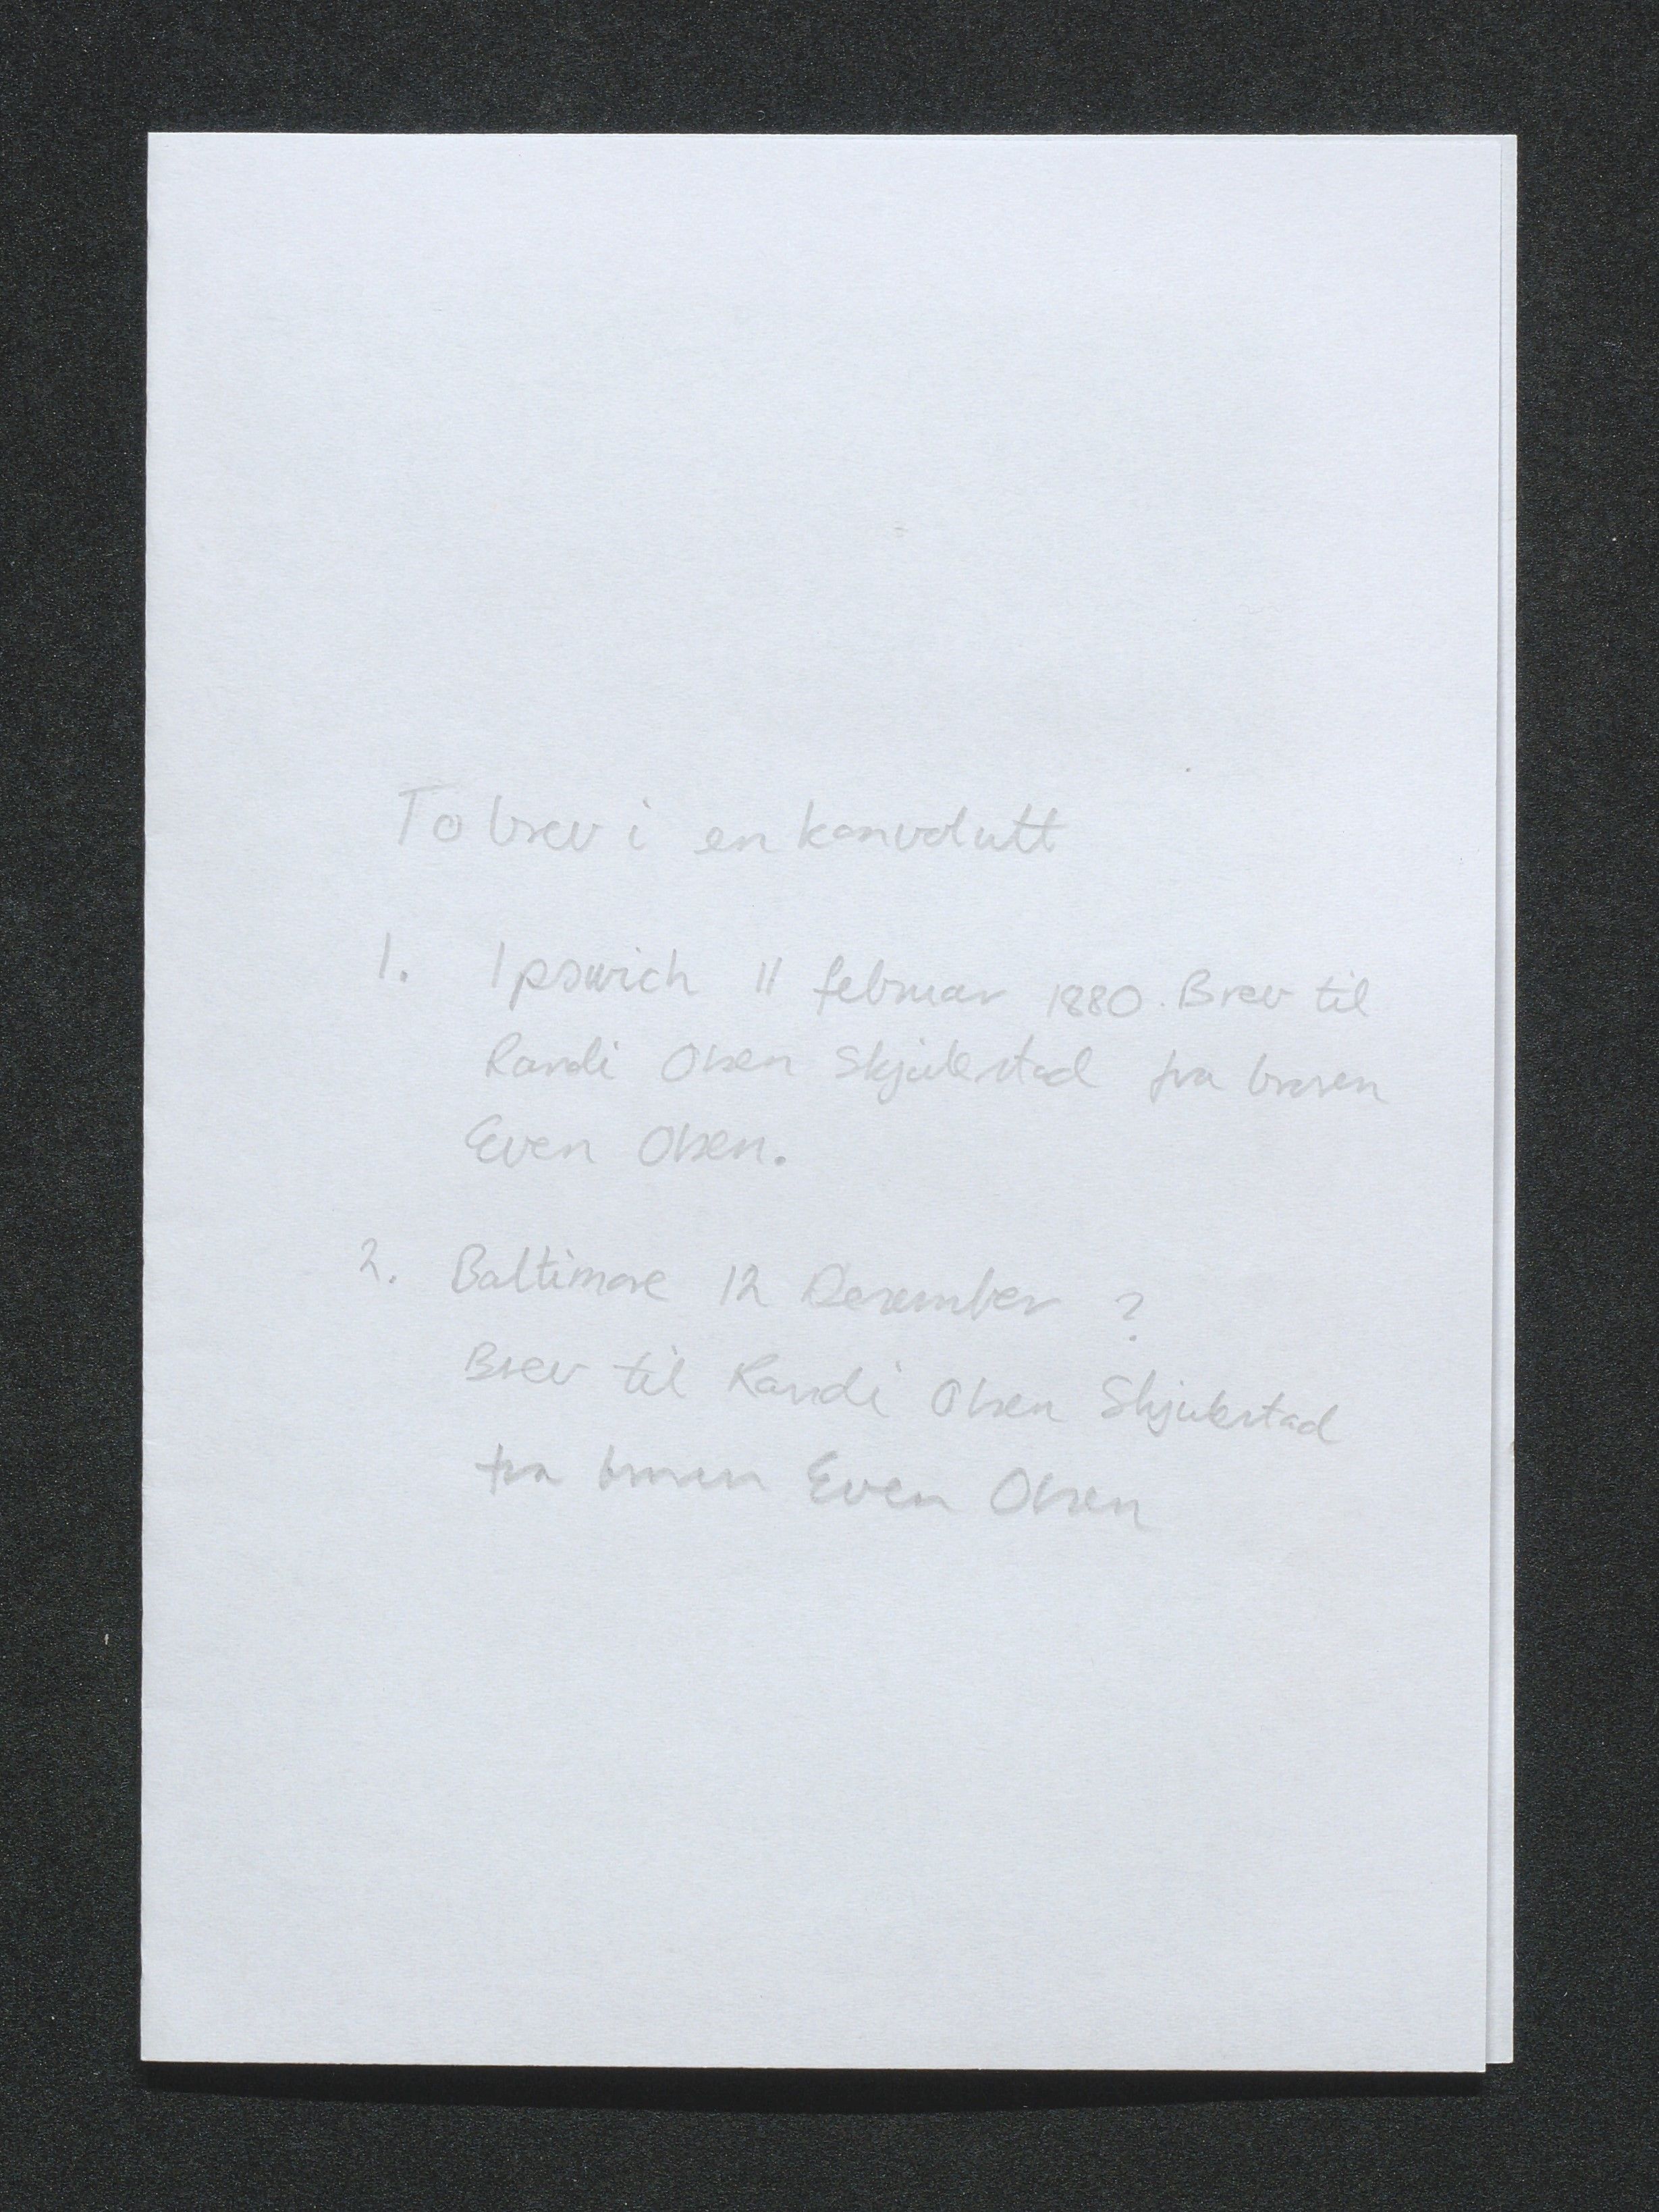 To brev i en konvolutt
1. Ipswich 11 februar 1880. Brev til
Randi Olsen Skjulestad fra broren
Even Olsen.
2. Baltimore 12 Desember ?
Brev til Randi Olsen Skjulestad
fra broren Even Olsen